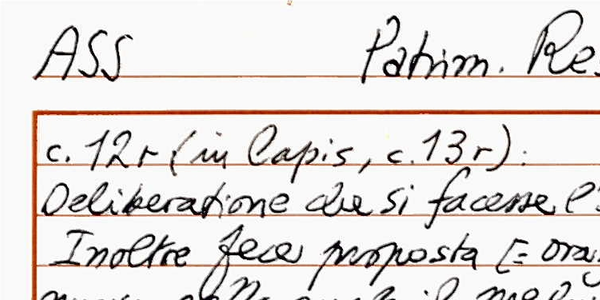 ASS Patrim. Res
c. 12r (in Capis, c. 13r):
Deliberatione che si facesse l'
Inoltre fece proposta [= ora